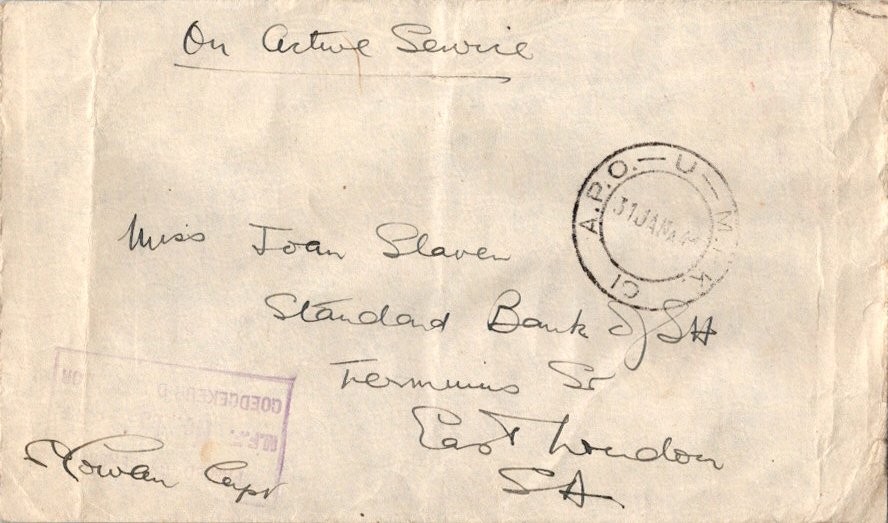 On Active Service
A.P.O.—U—M.D.K. CI
31 JAN
Miss Joan Slaven
Standard Bank of SA
Terminus St
East London
SA
GOEDGEKEUR
Capt